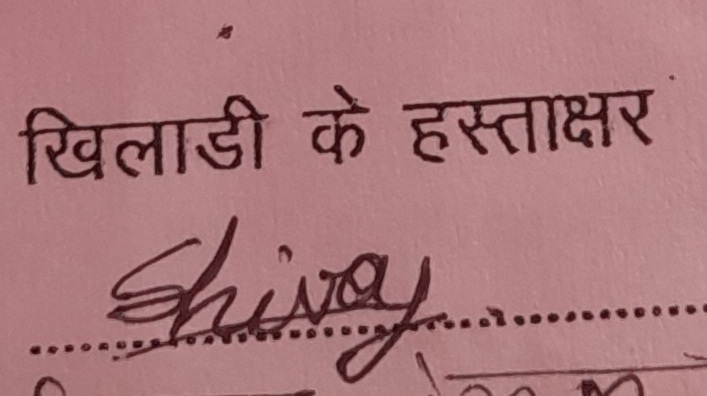 खिलाडी के हस्ताक्षर
Shivay